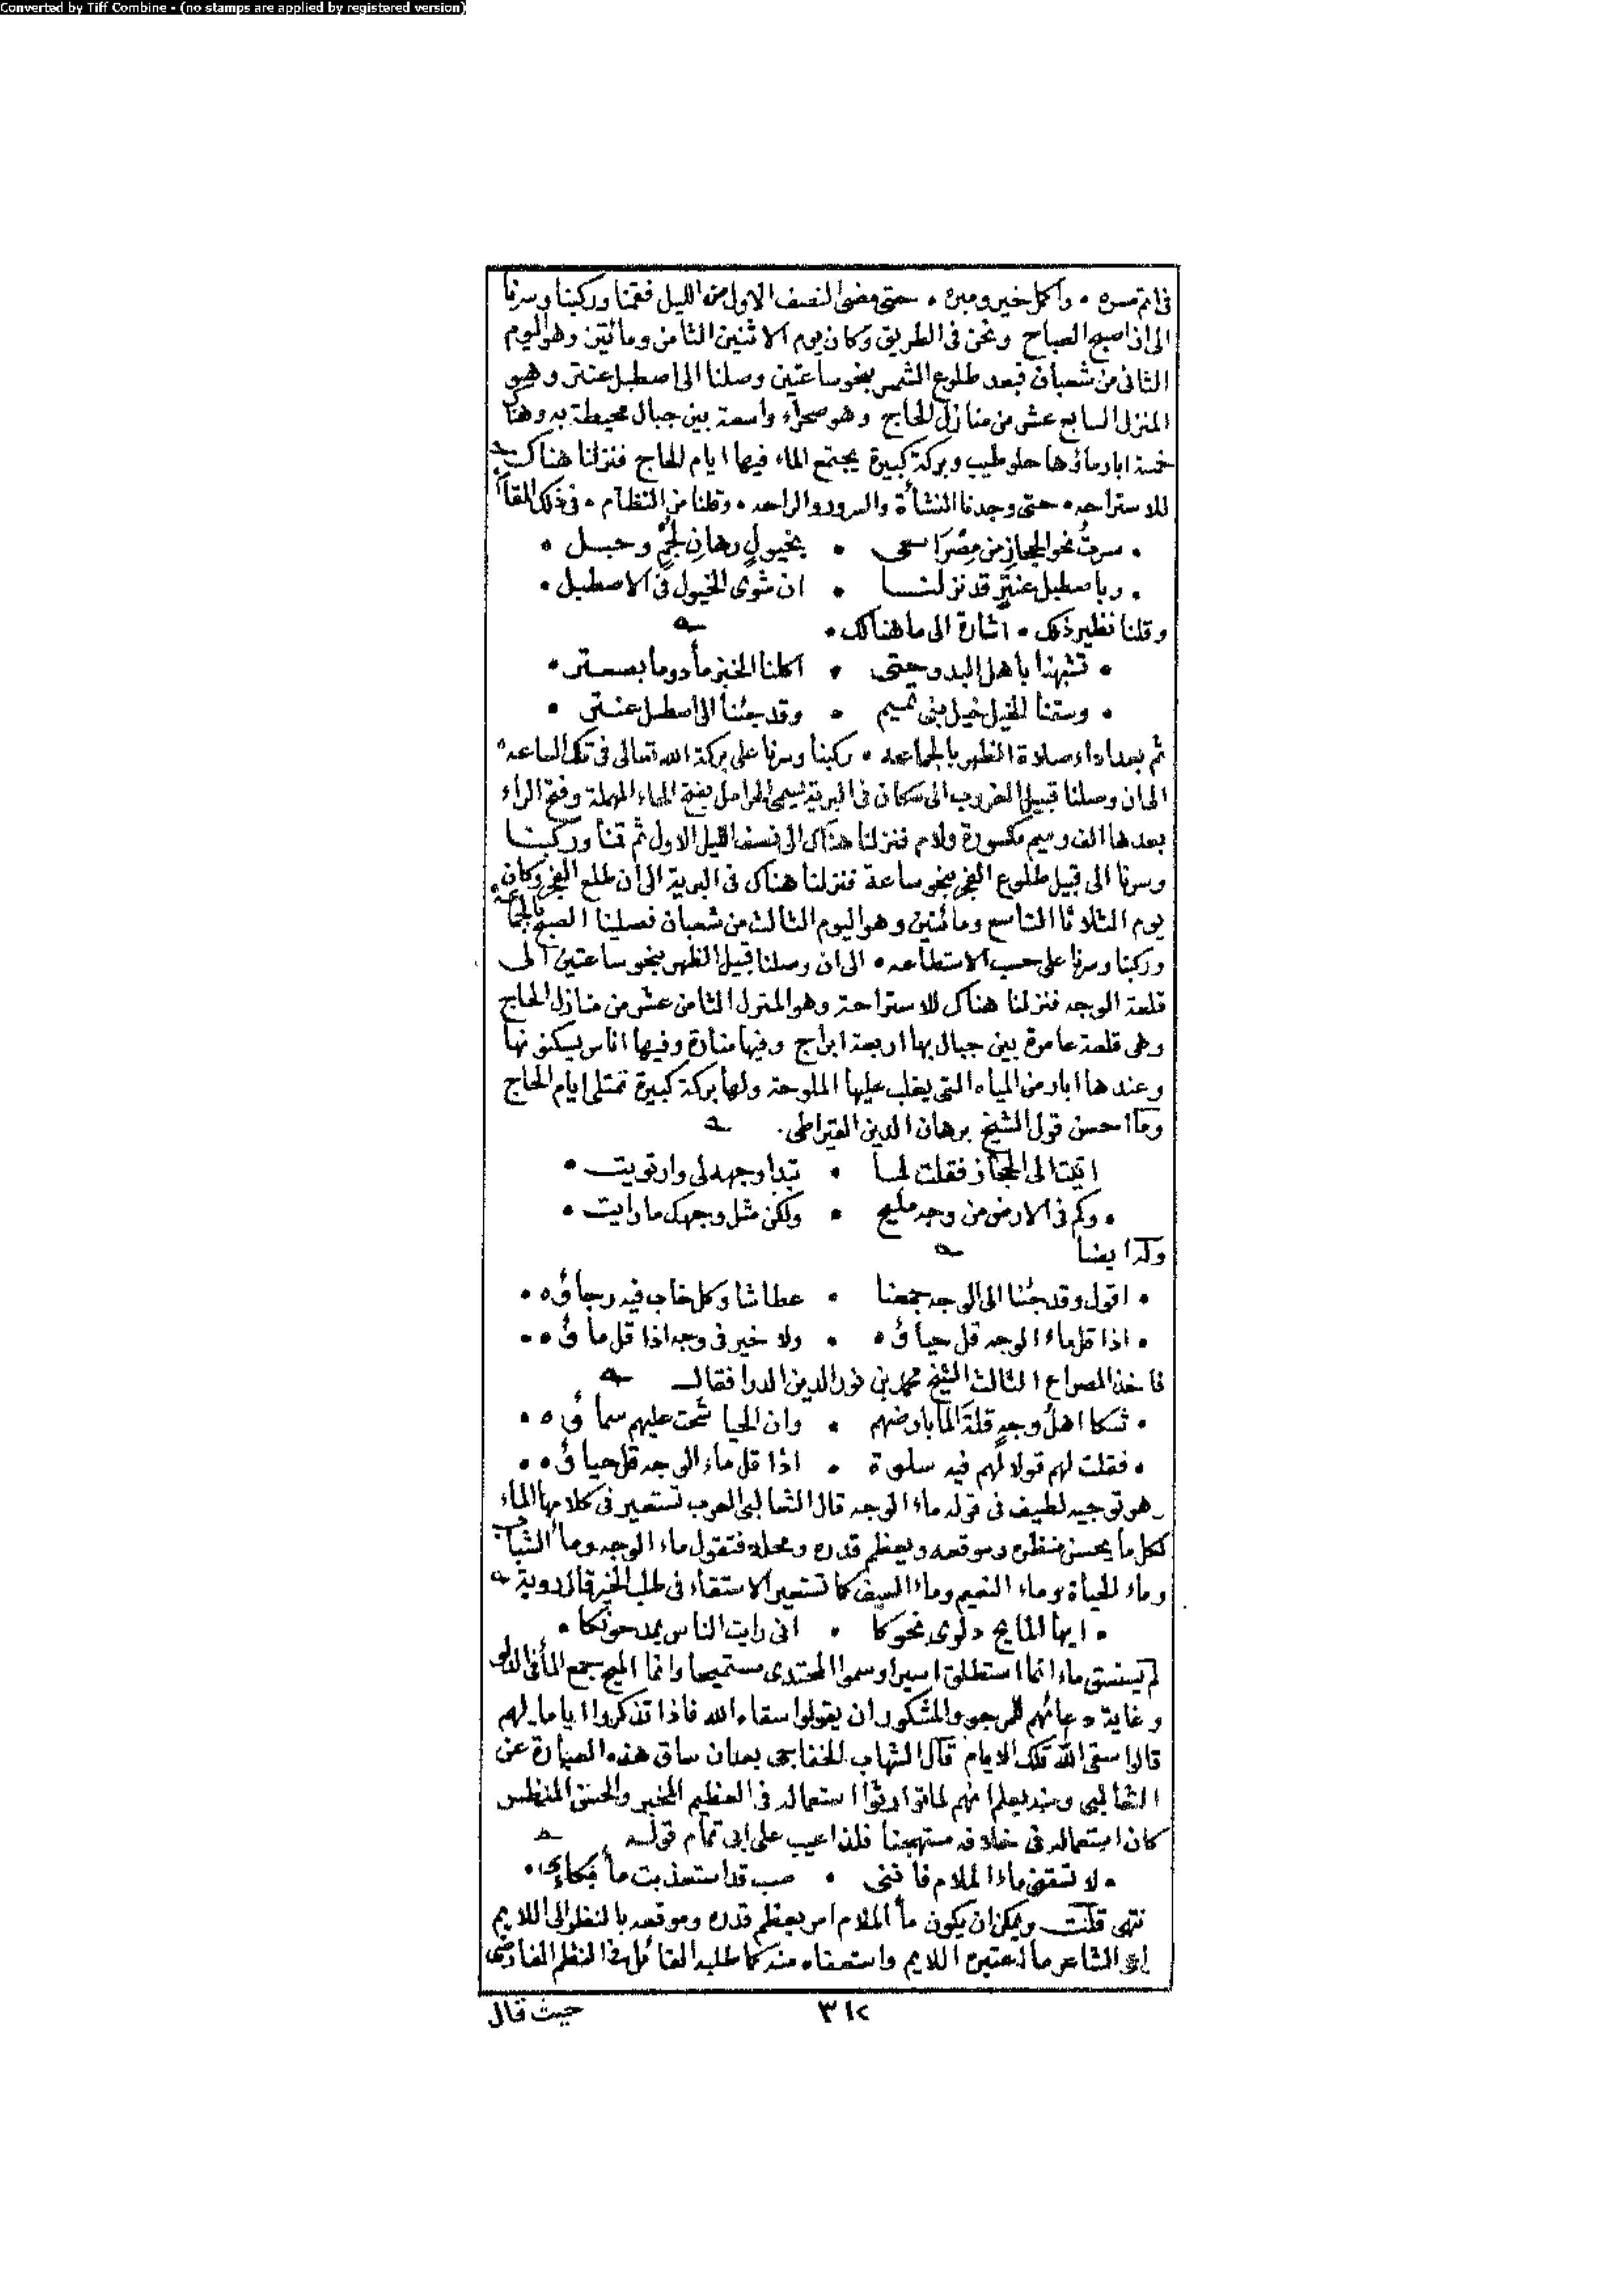 Converted by Tiff Combine - (no stamps are applied by registered version)
فى اتم مسره • واكمل خير ومبره • حتى مضى النصف الاول من الليل فقمنا وركبنا وسرنا
الى ان اصبح الصباح ونحن فى الطريق وكان يوم الاثنين الثامن ومائتين وهو اليوم
الثانى من شعبان فبعد طلوع الشمس بنحو ساعتين وصلنا الى اصطبل عنتر وهو
المنزل السابع عشر من منازل الحاج وهو صحراء واسعة بين جبال محيطة به وهناك
خمسة ابار ماؤها حلو طيب وبركة كبيرة يجتمع الماء فيها ايام الحاج فنزلنا هناك
للاستراحه • حتى وجدنا النشأة والسرور والراحه • وقلنا من النظام • فى ذلك المقام
• سرت نحو الحجاز من مصر اسعى • بخيول رهان لجم وحبل •
• وباصطبل عنتر قد نزلنا • ان شوى الخيول فى الاصطبل •
وقلنا نظير ذلك • اشارة الى ما هنالك •
• تشبهنا باهل البدو حتى • اكلنا الخبز مأدوما بصعتر •
• وسقنا الخيل خيل بنى تميم • وقد جئنا الى اسطبل عنتر •
ثم بعد اداء صلاة الظهر بالجماعه • ركبنا وسرنا على بركة الله تعالى فى تلك الساعه •
الى ان وصلنا قبيل الغروب الى مكان فى البرية يسمى الحرامل بفتح الحاء المهملة وفتح الراء
بعدها الف وميم مكسورة ولام فنزلنا هناك الى نصف الليل الاول ثم قمنا وركبنا
وسرنا الى قبيل طلوع الفجر بنحو ساعة فنزلنا هناك فى البرية الى ان طلع الفجر وكان
يوم الثلاثا التاسع ومائتين وهو اليوم الثالث من شعبان فصلينا الصبح بالجماعة
وركبنا وسرنا على حسب الاستطاعه • الى ان وصلنا قبيل الظهر بنحو ساعتين الى
قلعة الوجه فنزلنا هناك للاستراحة وهو المنزل الثامن عشر من منازل الحاج
وهى قلعة عامرة بين جبال بها اربعة ابراج وفيها منارة وفيها اناس يسكنونها
وعندها ابار من المياه التى يغلب عليها الملوحة ولها بركة كبيرة تمتلى ايام الحاج
وما احسن قول الشيخ برهان الدين القيراطى .
اتيت الى الحجاز فقلت لما • تبدا وجهه لى وارتويت •
• وكم فى الارض من وجه مليح • ولكن مثل وجهك ما رايت •
وله ايضا
• اقول وقد جئنا الى الوجه جمعنا • عطاشا وكل خاب فيه رجاؤه •
• اذا قل ماء الوجه قل حياؤه • ولا خير فى وجه اذا قل ماؤه •
فاخذ المصراع الثالث الشيخ محمد بن نور الدين الدرا فقال
• شكا اهل وجه قلة الما بارضهم • وان الحيا شحت عليهم سماؤه •
• فقلت لهم قولا لهم فيه سلوة • اذا قل ماء الوجه قل حياؤه •
وهو توجيه لطيف فى قوله ماء الوجه قال الثعالبى العرب تستعير فى كلامها الماء
لكل ما يحسن منظره وموقعه ويعظم قدره ومحله فتقول ماء الوجه وماء الشباب
وماء الحياة وماء النعيم وماء السيف كما تستعير الاستقاء فى طلب الخير قال روبة
• ايها المايح دلوى نحوكا • انى رايت الناس يمدحونكا •
لم يستسق ماء انما استطلق اسيرا وسموا المجتدى مستميحا وانما الميح جمع الماء فى الدلو
وغاية دعائهم للمرجو والمشكور ان يقولوا سقاه الله فاذا تذكروا اياما لهم
قالوا سقى الله تلك الايام قال الشهاب الخفاجى بعد ان ساق هذه العبارة عن
الثعالبى ومنه يعلم انهم لما توارثوا استعماله فى العظيم المخبر والحسن المنظر
كان استعماله فى خلافه مستهجنا فلذا عيب على ابى تمام قوله
• لا تسقنى ماء الملام فاننى • صب قد استعذبت ماء بكائى •
نتهى قلت ويمكن ان يكون ماء الملام امر يعظم قدره وموقعه بالنظر الى اللايم
الشاعر اللايم واستعفاه منه كما طلبه القائل النظم الفارضى
٣١٢
حيث قال